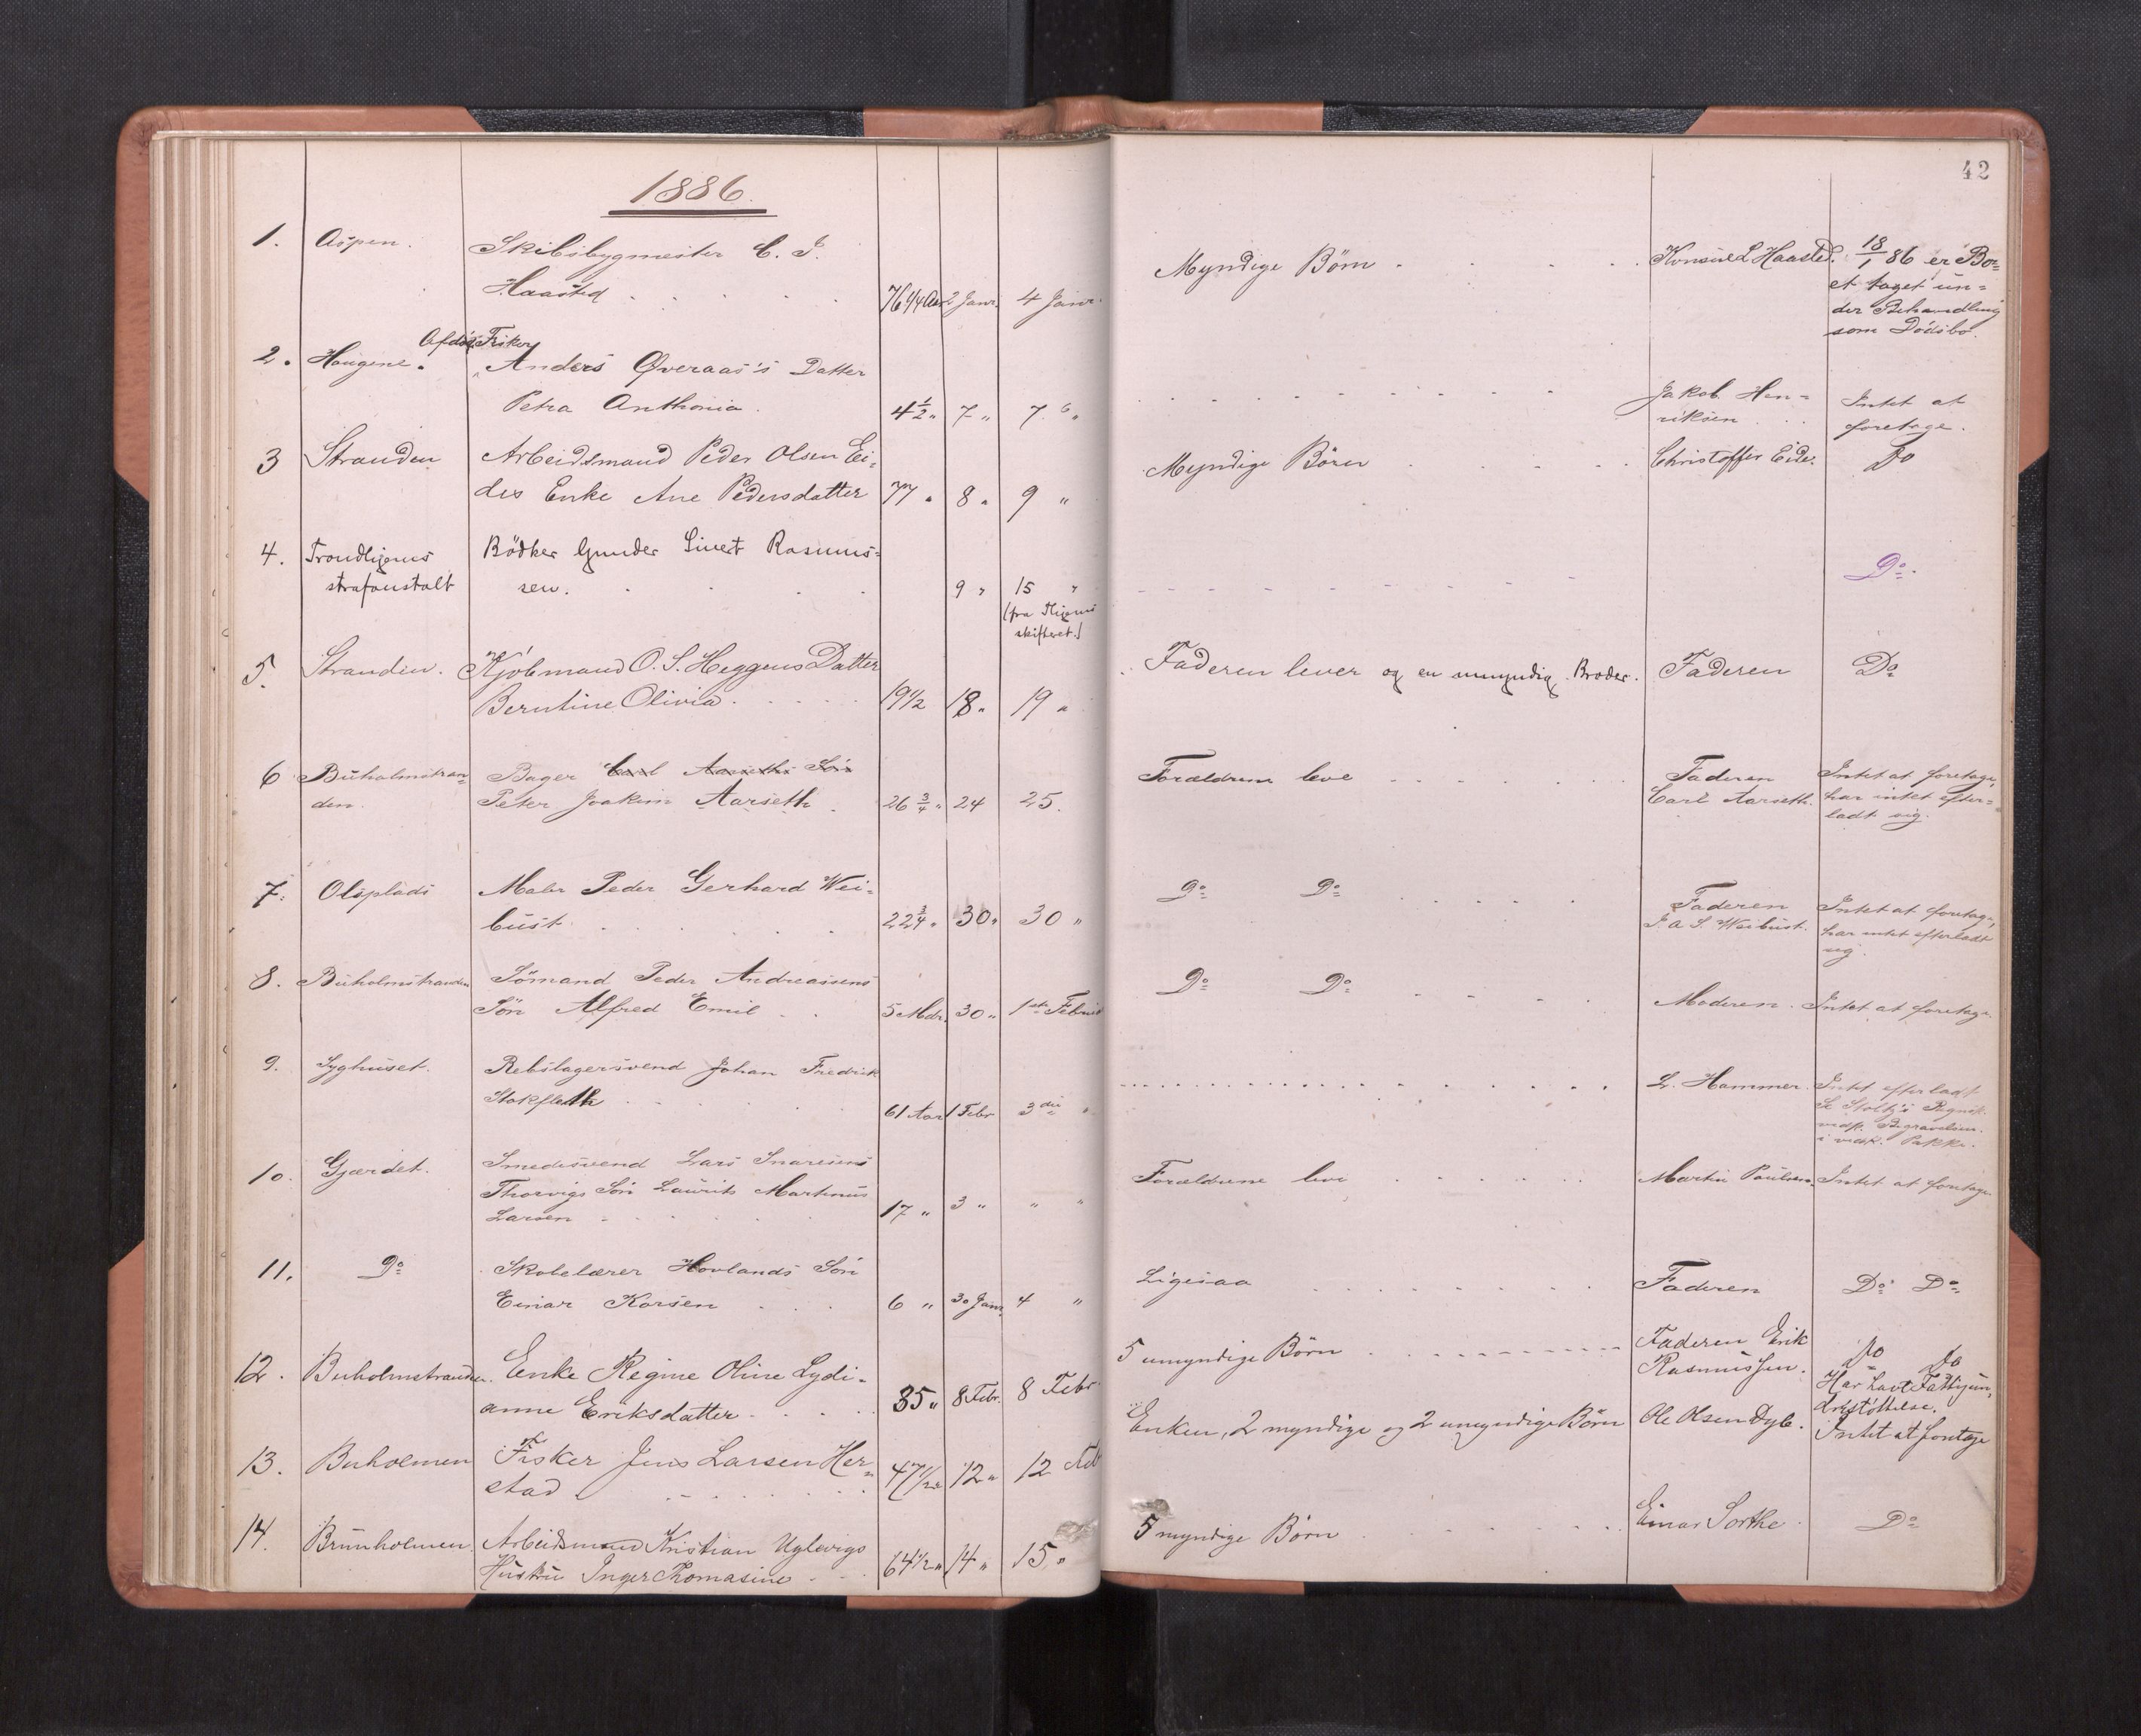 42
1886.
1. Aspen. Skibsbygmester C. J.
Haasted 76 1/4 Aar 2 Janr. 4 Janr. Myndige Børn Konsul L Haasted. 18/1 86 er Bo=
et taget un=
der Behandling
som Dødsbo.
Afdøde Fisker
2. Haugene. Anders Øveraas's Datter
Petra Anthonia. 4 1/2 " 7 " 7 " Jakob Hen=
riksen Intet at
foretage.
3 Stranden Arbeidsmand Peder Olsen Ei=
des Enke Ane Pedersdatter 77 " 8 " 9 " Myndige Børn Christoffer Eide. Do
4. Trondhjems Bødker Gunder Sivert Rasmus=
strafanstalt sen. 9 " 15 " Do.
(fra Thjems
skifteret.)
5. Stranden. Kjøbmand O. S. Heggens Datter
Berntine Olivia 19 1/2 18 " 19 " Faderen lever og en umyndig Broder. Faderen Do
6 Buholmstran=
den. Bager Carl Aarseths Søn
Peter Joakim Aarseth 26 3/4 " 24 25. Forældrene leve Faderen
Carl Aarseth. Intet at foretage,
har intet efter=
ladt sig.
7. Olsplads Maler Peder Gerhard Wei=
bust 22 3/4 " 30 " 30 " Do Do Faderen
Weibust. Intet at foretage,
har intet efterladt
sig.
8. Buholmstranden Sømand Peder Andreassens
Søn Alfred Emil 5 Mdr. 30 " 1ste Februar Do Do Moderen. Intet at foretage.
9. Syghuset. Rebslagersvend Johan Fredrik
Stokfleth 61 Aar 1 Febr 3die " L. Hammer. Intet efterladt
Begravelsen
i Pakke.
10. Gjærdet. Smedesvend Lars
Søn Laurits Martinus
Larsen 17 " 3 " " " Forældrene leve Martin Paulsen. Intet at foretage
11. Do Skolelærer Hovlands Søn
Einar Korsen 6 " 30 Janr. 4 " Ligesaa Faderen Do Do
12. Buholmstranden. Enke Regine Oline Lydi=
anne Eriksdatter 35 " 8 Febr. 8 Febr. 5 umyndige Børn Faderen Erik
Rasmussen. Do Do
Har havt Fattigun=
derstøttelse.
13. Buholmen Fisker Jens Larsen Her=
stad 47 1/2 " 12 " 12 Feb Enken, 2 myndige og 2 umyndige Børn Ole Olsen Dyb. Intet at foretage
14. Brunholmen. Arbeidsmand Kristian Uglevigs
Hustru Inger Thomasine 64 1/2 " 14 " 15 " 5 myndige Børn Einar Sortke. Do